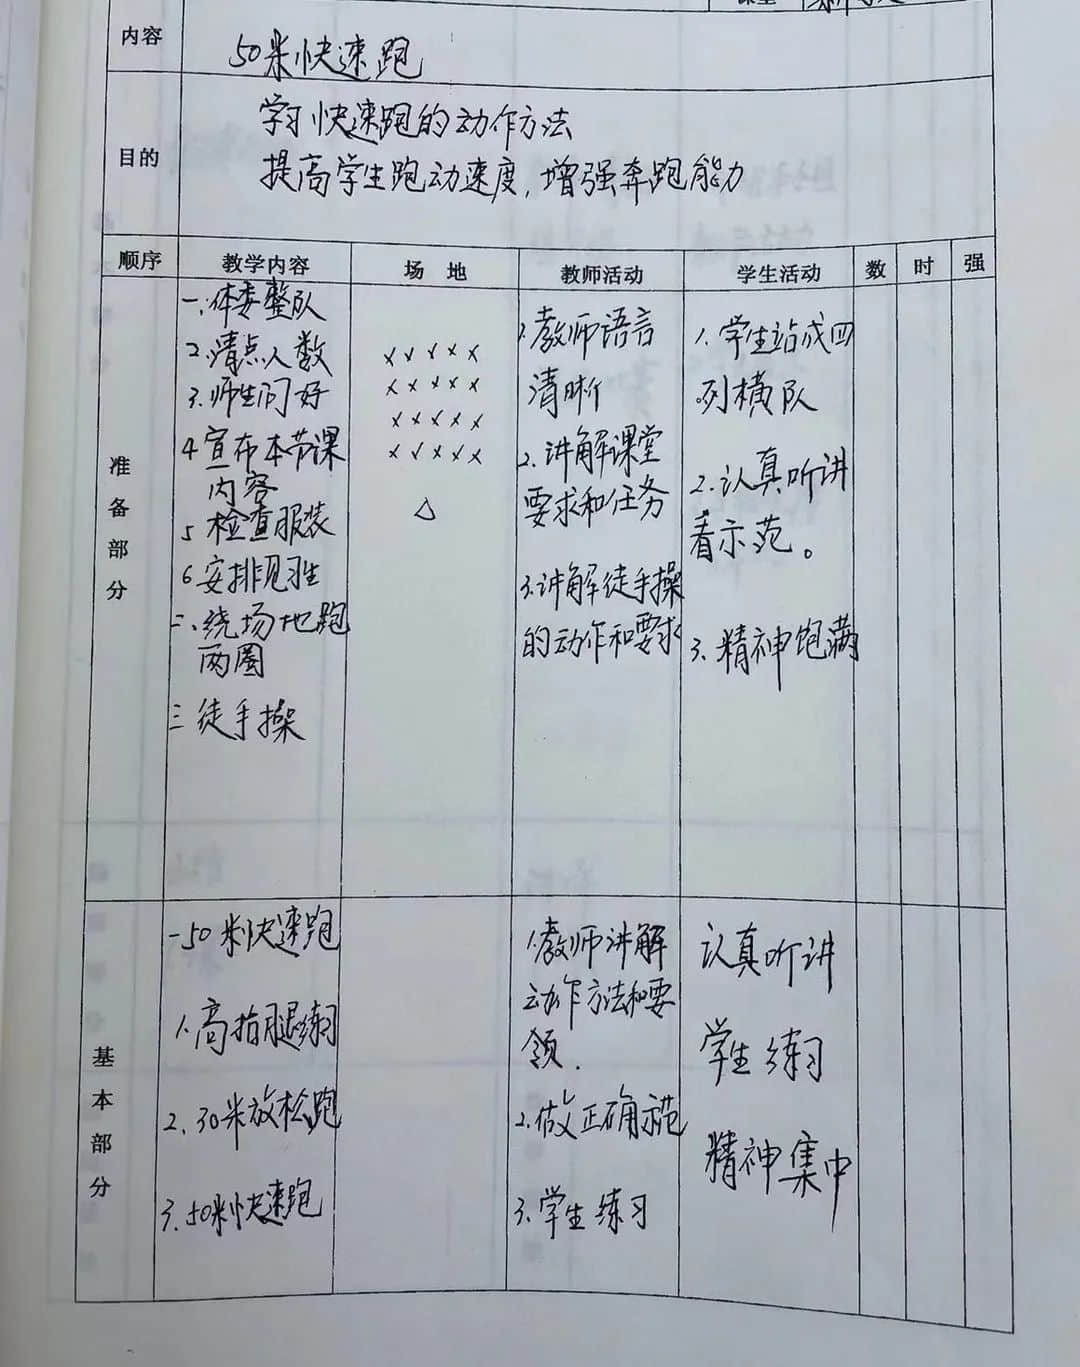 内容
50米快速跑
目的
学习快速跑的动作方法
提高学生跑动速度,增强奔跑能力
顺序 教学内容 场 地 教师活动 学生活动 数 时 强
准备部分
一、体委整队
2.清点人数
3.师生问好
4宣布本节课
内容
5检查服装
6安排见习生
二、绕场地跑
两圈
三徒手操
×××××
×××××
×××××
×××××
△
1.教师语言
清晰
2.讲解课堂
要求和任务
3.讲解徒手操
的动作和要求
1.学生站成四
列横队
2.认真听讲
看示范。
3.精神饱满
基本部分
一50米快速跑
1.高抬腿练习
2.30米放松跑
3.50米快速跑
1.教师讲解
动作方法和要
领.
2.做正确示范
3.学生练习
认真听讲
学生练习
精神集中